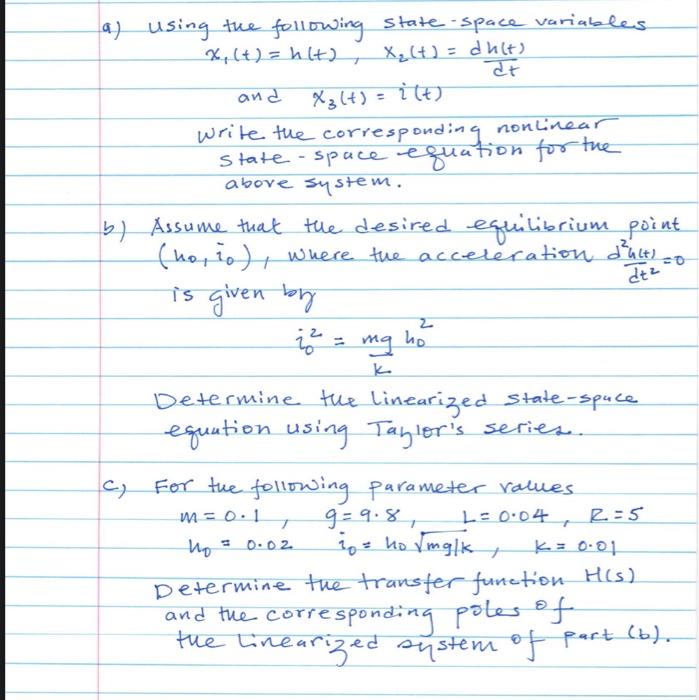 a) Using the following state-space variables
x₁(t) = h(t) , x₂(t) = dh(t)/dt
and x₃(t) = i(t)
Write the corresponding nonlinear
state-space equation for the
above system.
b) Assume that the desired equilibrium point
(h₀, i₀), where the acceleration d²h(t)/dt² = 0
is given by
i₀² = mg/k h₀²
Determine the linearized state-space
equation using Taylor's series.
c) For the following parameter values
m = 0.1 , g = 9.8 , L = 0.04 , R = 5
h₀ = 0.02 i₀ = h₀ √mg/k , k = 0.01
Determine the transfer function H(s)
and the corresponding poles of
the linearized system of part (b).